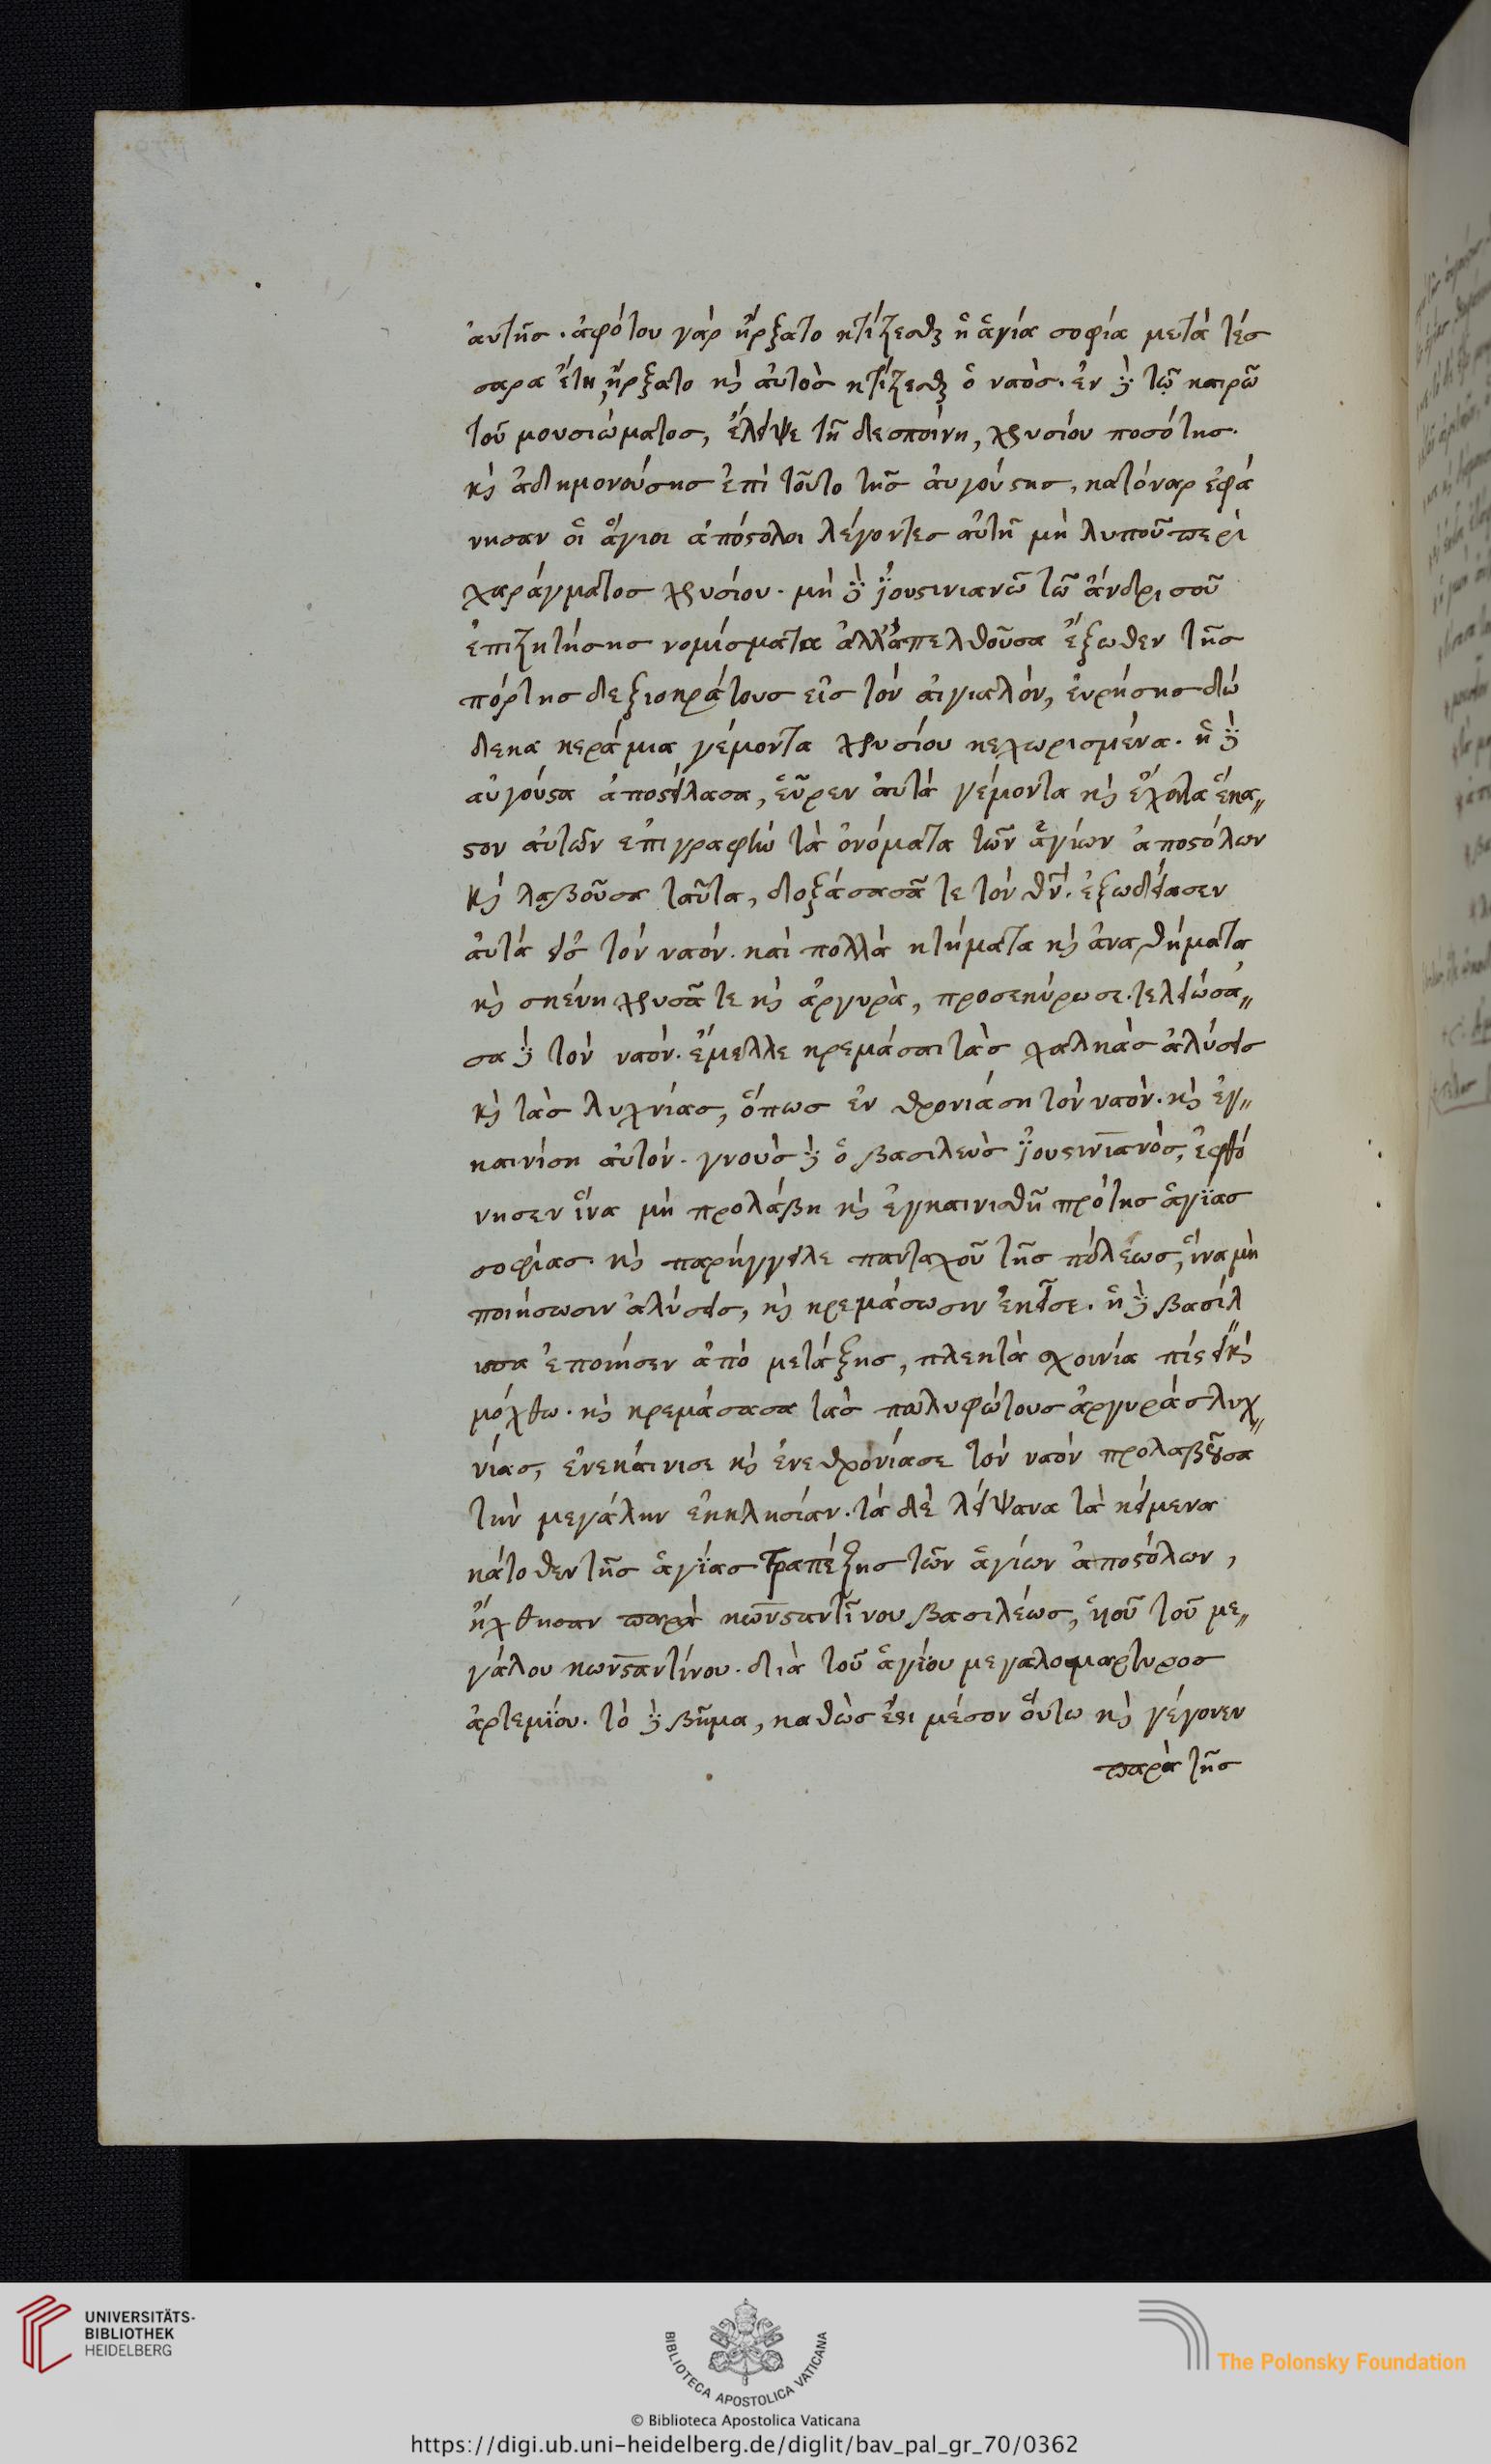 ἀυτῆς. ἀφότου γὰρ ἤρξατο κτίζεσθαι ἡ ἁγία σοφία μετὰ τέσ
σαρα ἔτη, ἤρξατο κ̀ς ἀυτὸς κτίζεσθαι ὁ ναὸς. ἐν δὲ τῶ καιρῶ
τοῦ μουσιώματος, ἔλειψε τῆ δεσποίνη, χρυσίου ποσότης.
κ̀ς ἀδημονούσης ἐπὶ τοῦτο τῆς ἀυγούϛης, κατόναρ ἐφά
νησαν οἱ ἅγιοι ἀπόϛολοι λέγοντες αὐτῆ μὴ λυποῦ περὶ
χαράγματος χρυσίου. μὴ δὲ ϊουϛινιανῶ τῶ ἀνδρι σοῦ
ἐπιζητήσης νομίσματα ἀλλ' ἀπελθοῦσα ἔξωθεν τῆς
πόρτης δεξιοκράτους εἰς τὸν αἰγιαλὸν, ἑυρήσης δώ
δεκα κεράμια γέμοντα χρυσίου κεχωρισμένα. ἡ δὲ
αὐγούϛα ἀποϛείλασα, εὗρεν ἀυτὰ γέμοντα κ̀ς ἔχοντα ἕκα〃
ϛον ἀυτῶν ἐπιγραφὴν τὰ ὀνόματα τῶν ἁγίων ἀποϛόλων
κ̀ς λαβοῦσα ταῦτα, δοξάσασά τε τὸν θν̅. ἐξωδίασεν
ἀυτὰ εἰς τὸν ναόν. καὶ πολλὰ κτήματα κ̀ς ἀναθήματα
κ̀ς σκέυη χρυσᾶ τε κ̀ς ἀργυρὰ, προσεκύρωσε. τελειώσα〃
σα δὲ τὸν ναὸν. ἔμελλε κρεμάσαι τὰς χαλκὰς ἀλύσεις
κ̀ς τὰς λυχνίας, ὅπως ἐν θρονιάση τὸν ναὸν. κ̀ς ἐγ〃
καινίση ἀυτὸν. γνοὺς δὲ ὁ βασιλεὺς ϊουϛινιανὸς, ἐφθό
νησεν ἵνα μὴ προλάβη κ̀ς ἐγκαινισθῆ πρὸ τῆς ἁγίας
σοφίας. κ̀ς παρήγγειλε πανταχοῦ τῆς πόλεως, ἵνα μὴ
ποιήσωσιν ἀλύσεις, κ̀ς κρεμάσωσιν ἐκεῖσε. ἡ δὲ βασίλ〃
ισσα ἐποίησεν ἀπὸ μετάξης, πλεκτὰ σχοινία
μόχθω. κ̀ς κρεμάσασα τὰς πολυφώτους ἀργυρὰς λυχ〃
νίας, ἐνεκάινισε κ̀ς ἐνεθρονίασε τὸν ναὸν προλαβοῦσα
τὴν μεγάλην ἐκκλησίαν. τὰ δὲ λείψανα τὰ κείμενα
κάτοθεν τῆς ἁγίας τραπέζης τῶν ἁγίων ἀποϛόλων,
ἤχθησαν παρὰ κωνϛαντίνου βασιλέως, ὑιοῦ τοῦ με〃
γάλου κωνϛαντίνου. διὰ τοῦ ἁγίου μεγαλομαρτυρος
ἀρτεμίου. τὸ δὲ βῆμα, καθὼς ἔϛι μέσον ὅυτω κ̀ς γέγονεν
παρὰ τῆς
UNIVERSITÄTS-
BIBLIOTHEK
HEIDELBERG
BIBLIOTECA APOSTOLICA VATICANA
The Polonsky Foundation
© Biblioteca Apostolica Vaticana
https://digi.ub.uni-heidelberg.de/diglit/bav_pal_gr_70/0362